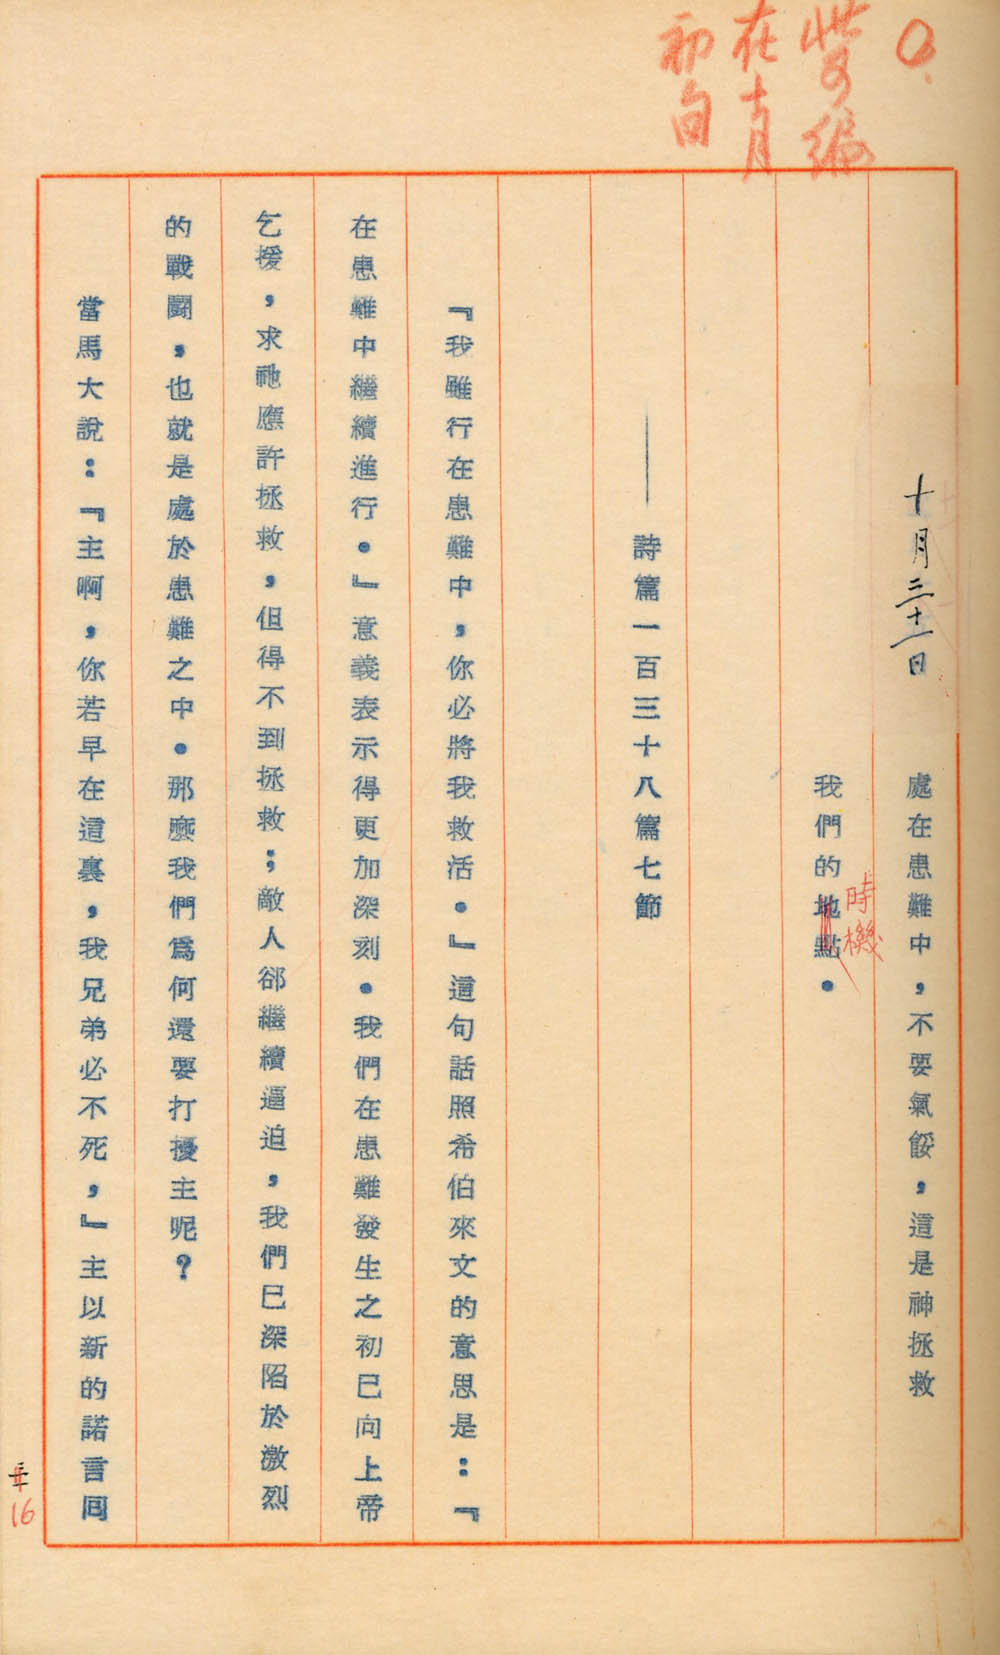 Q.
此可編
在十月
初旬
十月三十一日
處在患難中，不要氣餒，這是神拯救
我們的地點．
時機
——詩篇一百三十八篇七節
『我雖行在患難中，你必將我救活．』這句話照希伯來文的意思是：『
在患難中繼續進行．』意義表示得更加深刻．我們在患難發生之初巳向上帝
乞援，求祂應許拯救，但得不到拯救；敵人郤繼續逼迫，我們巳深陷於激烈
的戰鬪，也就是處於患難之中．那麼我們爲何還要打擾主呢？
當馬大說：『主啊，你若早在這裏，我兄弟必不死，』主以新的諾言囘
16